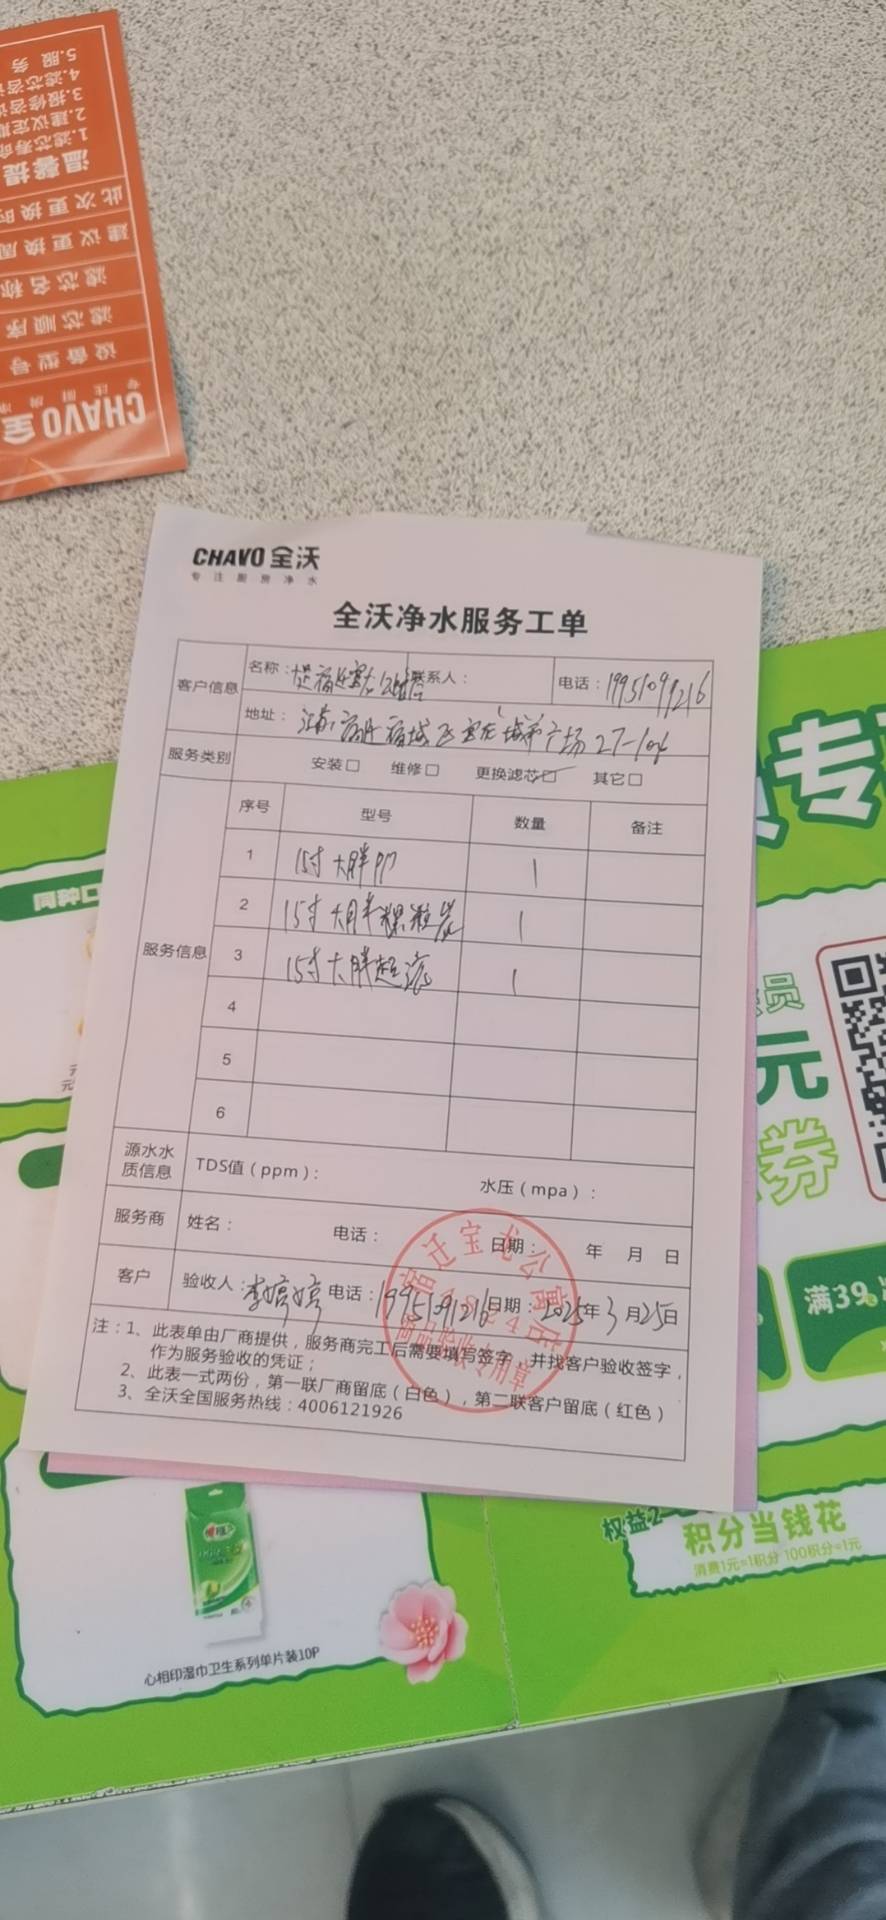 5.服务
4.滤芯咨
3.报修咨
2.建议定期
1.滤芯寿命
温馨提
此次更换时
建议更换周
滤芯名称
滤芯顺序
设备型号
CHAVO全
CHAVO全沃
专注厨房净水
全沃净水服务工单
客户信息
名称：
联系人：
电话：19951091216
地址：江苏 宿迁 宿城区宝龙城市广场27-106
服务类别
安装□ 维修□ 更换滤芯☑ 其它□
服务信息
序号 型号 数量 备注
1 15寸大胖PP 1
2 15寸大胖颗粒炭 1
3 15寸大胖超滤 1
4
5
6
源水水质信息 TDS值（ppm）： 水压（mpa）：
服务商 姓名： 电话： 日期： 年 月 日
客户 验收人：李婷婷 电话：19951091216 日期：2025年3月25日
注：1、此表单由厂商提供，服务商完工后需要填写签字，并找客户验收签字，
作为服务验收的凭证；
2、此表一式两份，第一联厂商留底（白色），第二联客户留底（红色）
3、全沃全国服务热线：4006121926
专
同种口
员
元
券
满39
权益2
积分当钱花
消费1元=1积分 100积分=1元
心相印湿巾卫生系列单片装10P